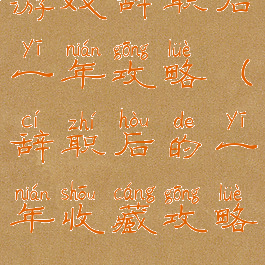 游戏辞职后
yī nián gōng lüè
一年攻略（
cí zhí hòu de yī
辞职后的一
nián shōu cáng gōng lüè
年收藏攻略